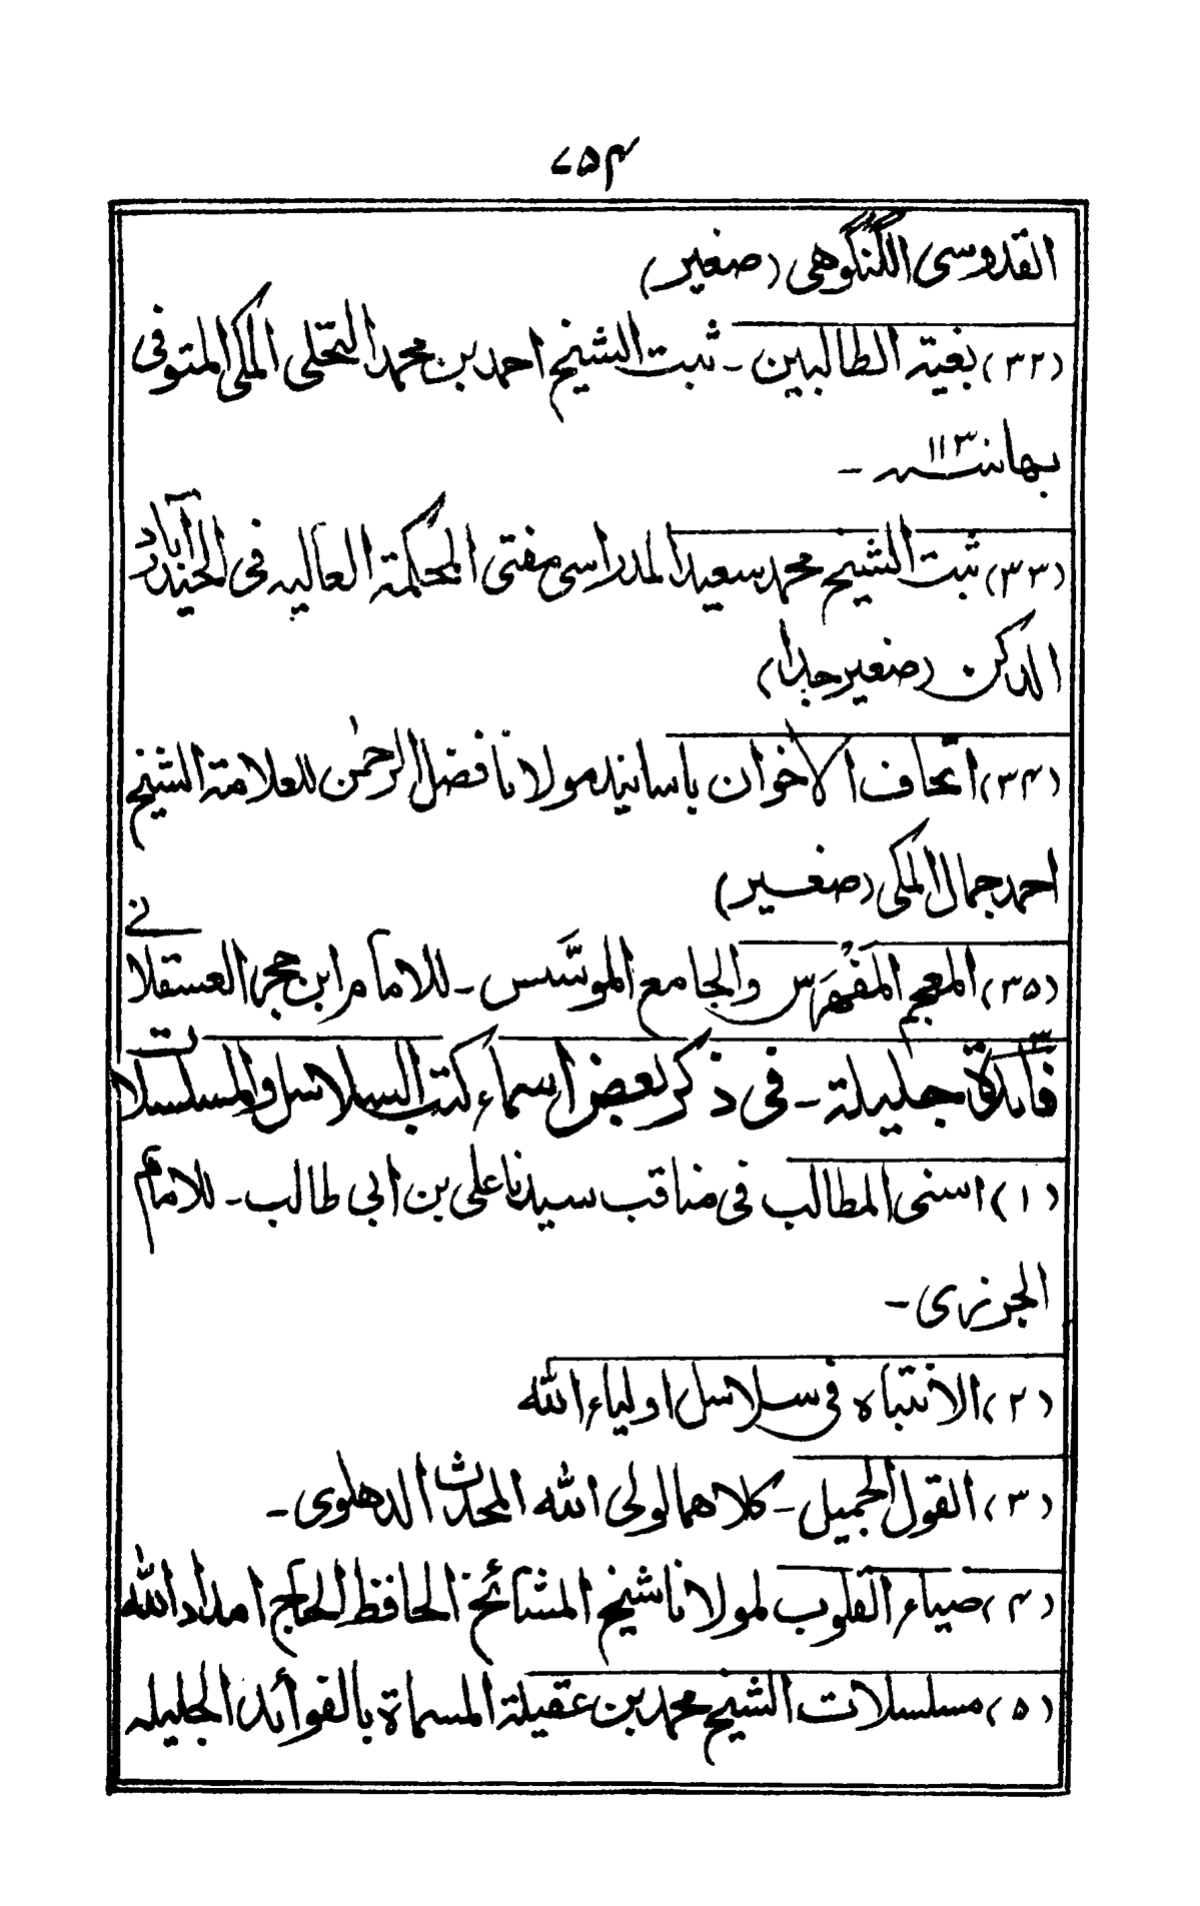 ۷۵۴
القدوسی الگنگوهی (صغیر)
(۳۲) بغیة الطالبین ۔ ثبت الشیخ احمد بن محمد النخلی المکی المتوفی
بها سنة ۱۱۳ ۔
(۳۳) ثبت الشیخ محمد سعید المدراسی مفتی المحکمة العالیه فی الحیدرآباد
الدکن (صغیر جدا)
(۳۴) اتحاف الاخوان باسانید مولانا فضل الرحمٰن للعلامة الشیخ
احمد جمال المکی (صغیر)
(۳۵) المعجم المَفَهْرَس والجامع الموسَّس ۔ للامام ابن حجر العسقلانی
فائدة جلیلة ۔ فی ذکر بعض اسماء کتب السلاسل والمسلسلات
(۱) اسنی المطالب فی مناقب سیدنا علی بن ابی طالب ۔ للامام
الجزری ۔
(۲) الانتباه فی سلاسل اولیاء الله
(۳) القول الجمیل ۔ کلاهما لولی الله المحدث الدهلوی ۔
(۴) ضیاء القلوب لمولانا شیخ المشائخ الحافظ الحاج امداد الله
(۵) مسلسلات الشیخ محمد بن عقیلة المسماة بالفوائد الجلیله